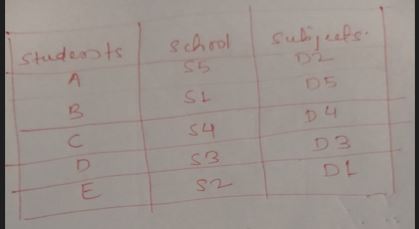 Students school Subjects.
A S5 D2
B S1 D5
C S4 D4
D S3 D3
E S2 D1